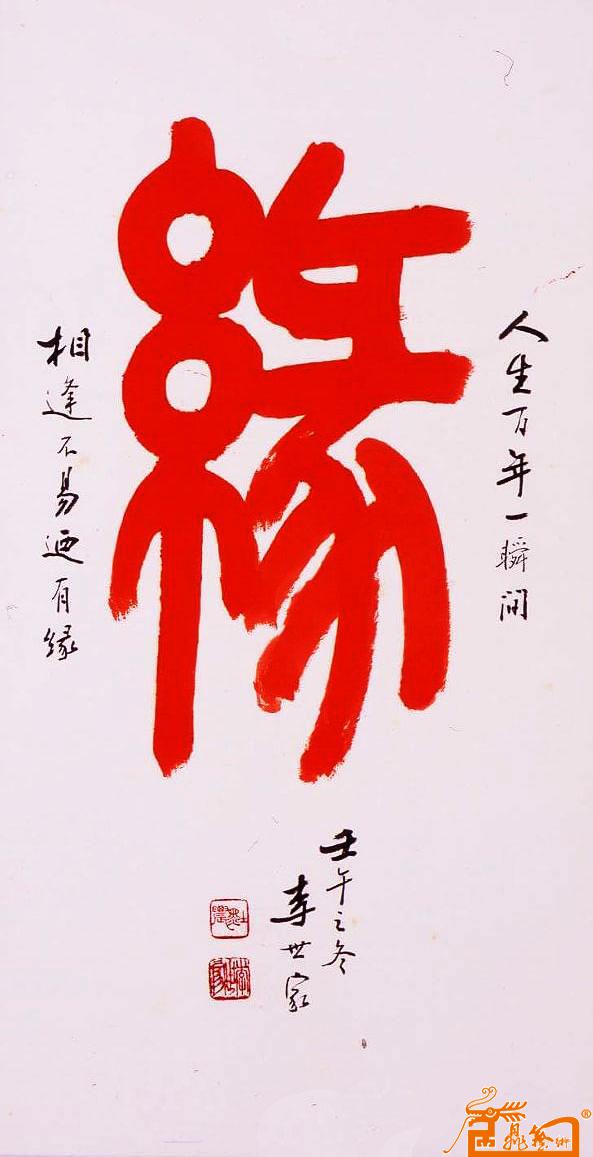 緣
人生百年一瞬间
相逢不易迺有缘
壬午之冬
李世家